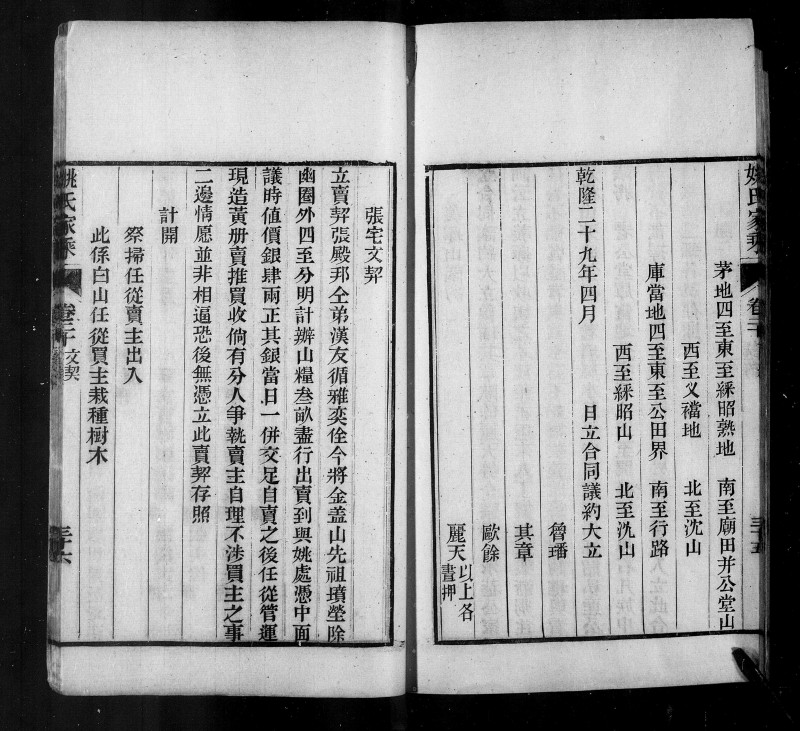 姚氏家乘 卷二十 三十五
茅地四至東至綵昭熟地 南至廟田并公堂山
西至义襠地 北至沈山
庫當地四至東至公田界 南至行路
西至綵昭山 北至沈山
乾隆二十九年四月 日立合同議約大立
曾璠
其章
歐餘
麗天 以上各書押
張宅文契
立賣契張殿邦仝弟漢友循雅奕佺今將金盖山先祖墳塋除
幽圈外四至分明計辦山糧叁畝盡行出賣到與姚處憑中面
議時値價銀肆兩正其銀當日一併交足自賣之後任從管運
現造黃册賣推買收倘有分人爭執賣主自理不涉買主之事
二邊情愿並非相逼恐後無憑立此賣契存照
計開
祭掃任從賣主出入
此係白山任從買主栽種樹木
姚氏家乘 卷二十 文契 三十六